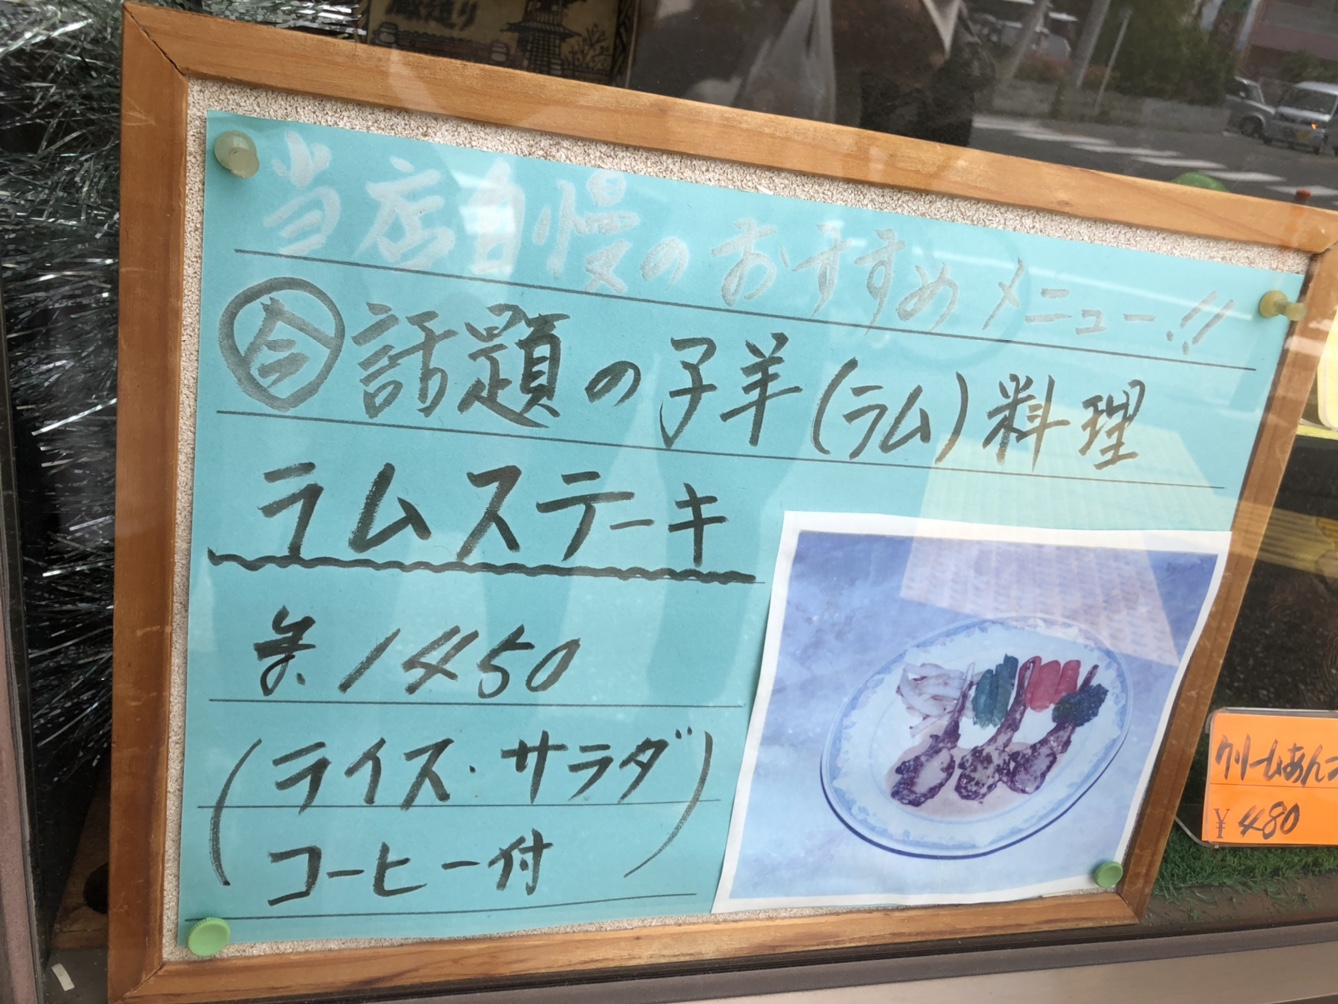 蔵造り
当店自慢のおすすめメニュー!!
今話題の子羊(ラム)料理
ラムステーキ
¥1450
(ライス・サラダ
コーヒー付)
クリームあん
¥480